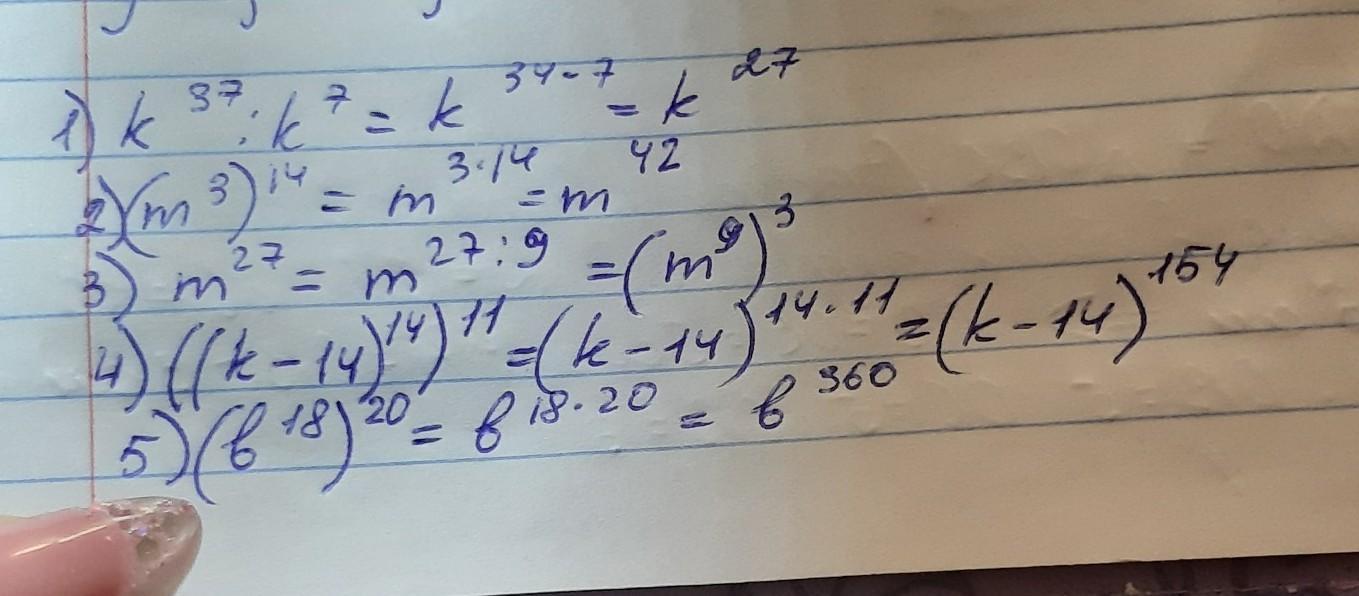 1) k^37 : k^7 = k^34-7 = k^27
2) (m^3)^14 = m^3·14 = m^42
3) m^27 = m^27:9 = (m^9)^3
4) ((k-14)^14)^11 = (k-14)^14·11 = (k-14)^154
5) (b^18)^20 = b^18·20 = b^360